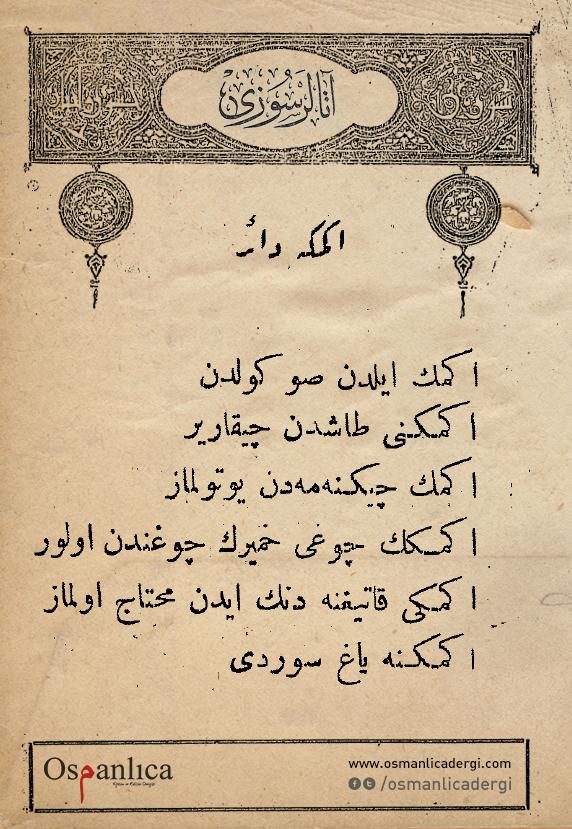 آتالر سوزی
اكمكه دائر
اكمك ایلدن صو كولدن
اكمكنی طاشدن چیقاریر
اكمك چیكنه‌مه‌دن یوتولماز
اكمكك چوغی خمیرك چوغندن اولور
اكمكی قاتیغنه دنك ایدن محتاج اولماز
اكمكنه یاغ سوردی
Osmanlıca
Eğitim ve Kültür Dergisi
www.osmanlicadergi.com
/osmanlicadergi